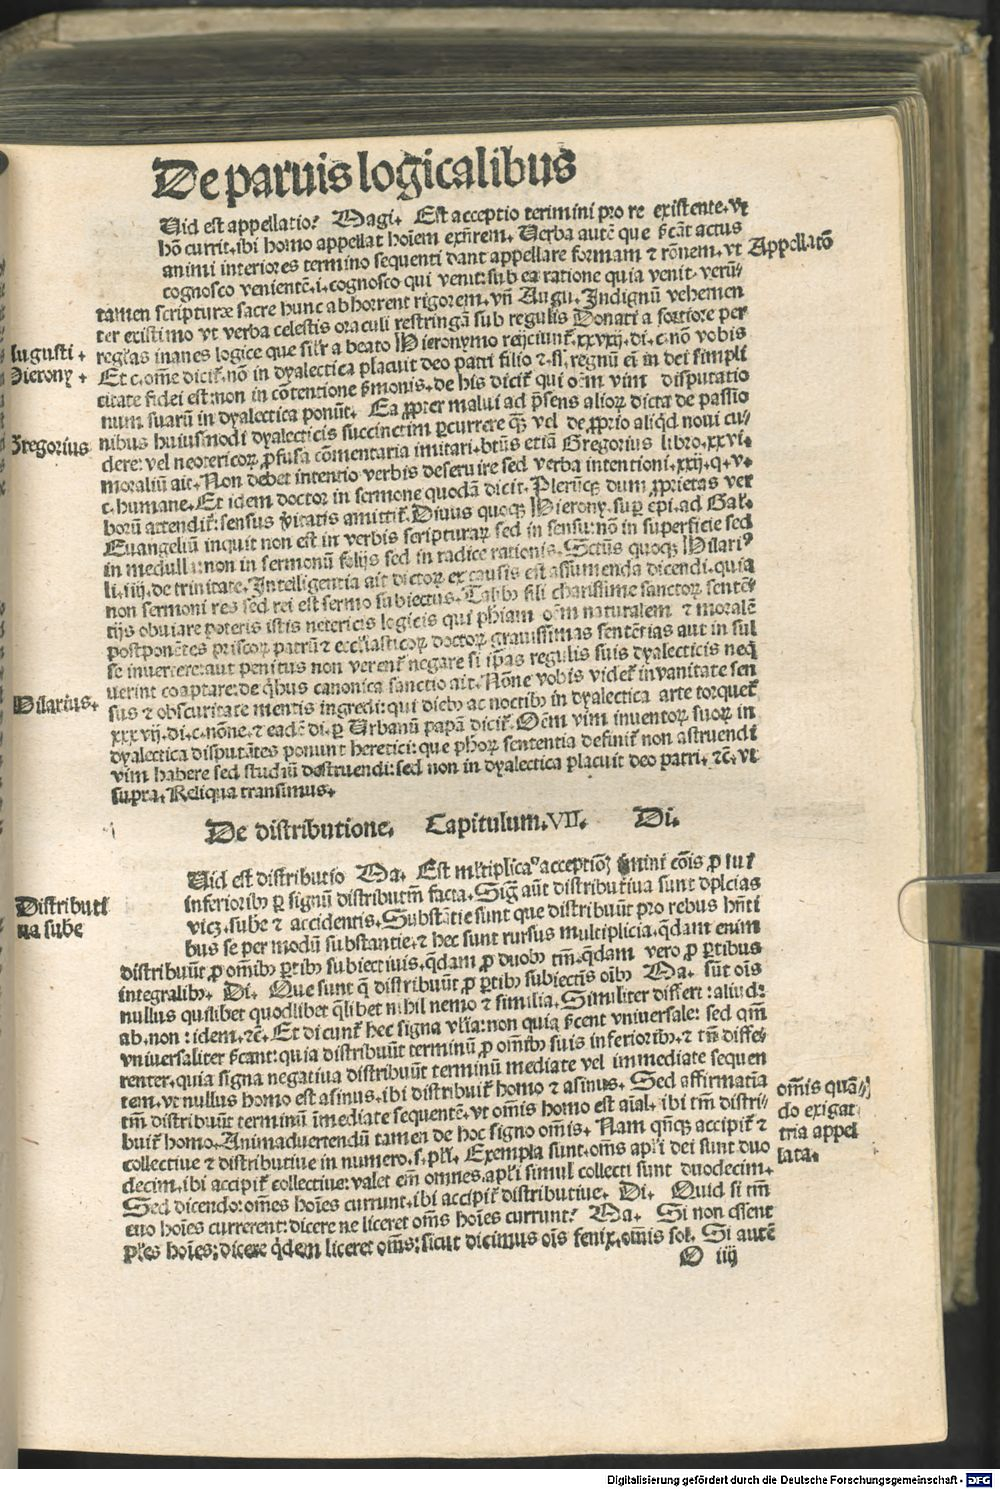 De paruis logicalibus
Uid est appellatio? Magi. Est acceptio termini pro re existente. vt
hō currit. ibi homo appellat hoīem exn̄tem. Verba autē que sīcāt actus
animi interiores termino sequenti dant appellare formam ⁊ rōnem. vt
Appellatō
cognosco venientē. i. cognosco qui venit: sub ea ratione quia venit. verū-
tamen scripturæ sacre hunc abhorrent rigorem. vn̄ Augu. Indignū vehemen
ter existimo vt verba celestis oraculi restringā sub regulis Donati a fortiore per
Augusti.
regl'as inanes logice que silr a beato Hieronymo reijciunt. xxxvij. di. c. nō vobis
Hierony.
Et c. om̄e dicit. nō in dyalectica placuit deo patri filio ⁊ ss. regnū ei in dei simpli
citate fidei est: non in cōtentione smonis. de his dicit qui oēm vim disputatio
num suarū in dyalectica ponūt. Ea ꝓpter malui ad pn̄sens alioꝝ dicta de passio
Gregorius
nibus huiusmodi dyalecticis succinctim ꝑcurrere ꝙ vel de ꝓprio aliqd noui cu-
dere: vel neotericoꝝ ꝓfusa cōmentaria imitari. btūs etiā Gregorius libro. xxvi.
moraliū ait. Non debet intentio verbis deseruire sed verba intentioni. xxij. q. v.
c. humane. Et idem doctor in sermone quodā dicit. Plerūꝙ dum ꝓprietas ver
borū attendit: sensus veritatis amittit. Diuus quoꝙ Hierony. sup epi. ad Gal.
Euangeliū inquit non est in verbis scripturaꝝ sed in sensu: nō in superficie sed
in medulla: non in sermonū folijs sed in radice rationis. Sctūs quoꝙ Hilari⁹
li. iiij. de trinitate. Intelligentia ait dictoꝝ ex causis est assumenda dicendi. quia
non sermoni res sed rei est sermo subiectus. Talibꝰ fili charissime sanctoꝝ sentē-
tijs obuiare poteris istis netericis logicis qui phiam oēm naturalem ⁊ moralē
postponētes priscoꝝ patrū ⁊ ecclīasticoꝝ doctoꝝ grauissimas sentētias aut in sul
se inuertere: aut penitus non verent negare si ip̄as regulis suis dyalecticis neq̄
uerint coaptare: de q̇bus canonica sanctio ait. Nōne vobis videt in vanitate sen
Hilarius.
sus ⁊ obscuritate mentis ingredi: qui diebꝰ ac noctibꝰ in dyalectica arte torquet
xxxvij. di. c. nōne. ⁊ eadē di. ꝑ Urbanū papā dicit. Oēm vim inuentoꝝ suoꝝ in
dyalectica disputātes ponunt heretici: que phoꝝ sententia definit non astruendi
vim habere sed studiū destruendi: sed non in dyalectica placuit deo patri. ⁊c. vt
supra. Reliqua transimus.
De distributione. Capitulum. VII. Di.
Uid est distributio Ma. Est mltiplicaᵒ acceptioꝫ tmini cōis ꝓ suis
inferioribꝰ ꝑ signū distributiū facta. Sig̅ aūt distributiua sunt dplicias
Distributi
ua sube
vicꝫ. sube ⁊ accidentis. Substātie sunt que distribuūt pro rebus hn̄ti
bus se per modū substantie. ⁊ hec sunt rursus multiplicia. qdam enim
distribuūt ꝓ om̄ibꝰ ꝑtibꝰ subiectiuis. qdam ꝓ duobꝰ tm̄. qdam vero ꝓ ꝑtibus
integralibꝰ. Di. Que sunt q̄ distribuūt ꝓ ꝑtibꝰ subiectis oībꝰ Ma. sūt oīs
nullus quilibet quodlibet qlibet nihil nemo ⁊ similia. Similiter differt: aliud:
ab. non: idem. ⁊c. Et dicunt hec signa vlīa: non quia sīcent vniuersale: sed qm̄
vniuersaliter sīcant: quia distribuūt terminū ꝓ om̄ibꝰ suis inferioribꝰ. ⁊ tn̄ diffe-
renter. quia signa negatiua distribuūt terminū mediate vel immediate sequen
tem. vt nullus homo est asinus. ibi distribuit homo ⁊ asinus. Sed affirmatīa
tm̄ distribuūt terminū īmediate sequentē. vt om̄is homo est aīal. ibi tm̄ distri-
buit homo. Animaduertendū tamen de hoc signo om̄is. Nam qn̄ꝙ accipit ⁊
om̄is quā-
do exigat
tria appel
lata.
collectiue ⁊ distributiue in numero. s. plr̄i. Exempla sunt. om̄s apl̄i dei sunt duo
decim. ibi accipit collectiue: valet em̄ omnes. apl̄i simul collecti sunt duodecim.
Sed dicendo: om̄es hoīes currunt. ibi accipit distributiue. Di. Quid si tm̄
duo hoīes currerent: dicere ne liceret om̄s hoīes currunt? Ma. Si non essent
pl̄es hoīes: dicere qdem liceret om̄s: sicut dicimus oīs fenix. om̄is sol. Si autē
O iiij
Digitalisierung gefördert durch die Deutsche Forschungsgemeinschaft - DFG